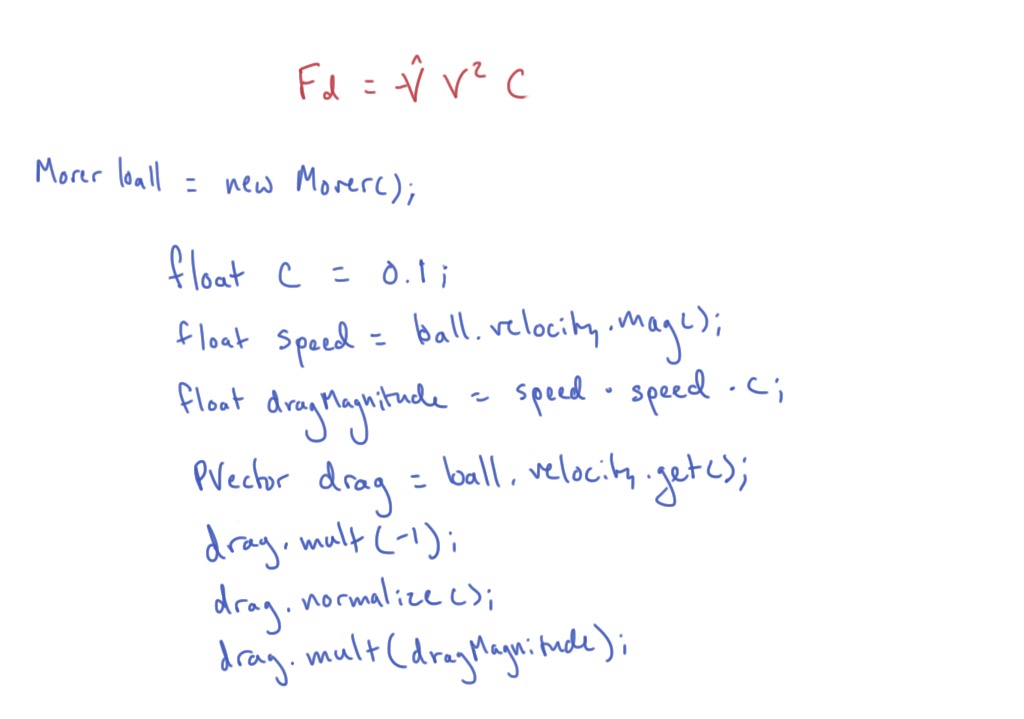 Fd = -V̂ V² C
Mover ball = new Mover();
float c = 0.1;
float speed = ball.velocity.mag();
float dragMagnitude = speed · speed · c;
PVector drag = ball.velocity.get();
drag.mult(-1);
drag.normalize();
drag.mult(dragMagnitude);